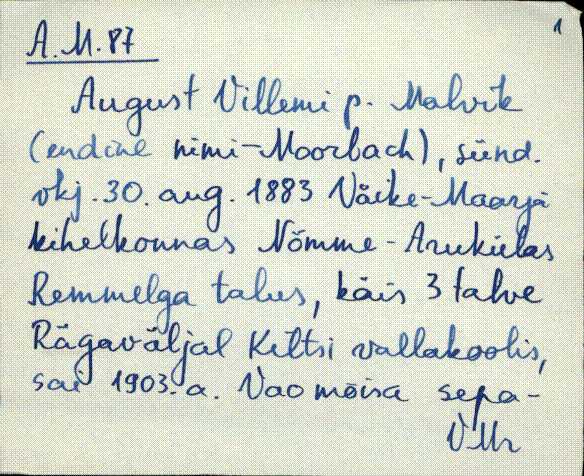 1
A.M.87
August Villemi p. Malvik
(endine nimi-Moorbach), sünd.
vkj. 30. aug. 1883 Väike-Maarja
kihelkonnas Nõmme-Arukülas
Remmelga talus, käis 3 talve
Rägaväljal Kiltsi vallakoolis,
sai 1903. a. Vao mõisa sepa-